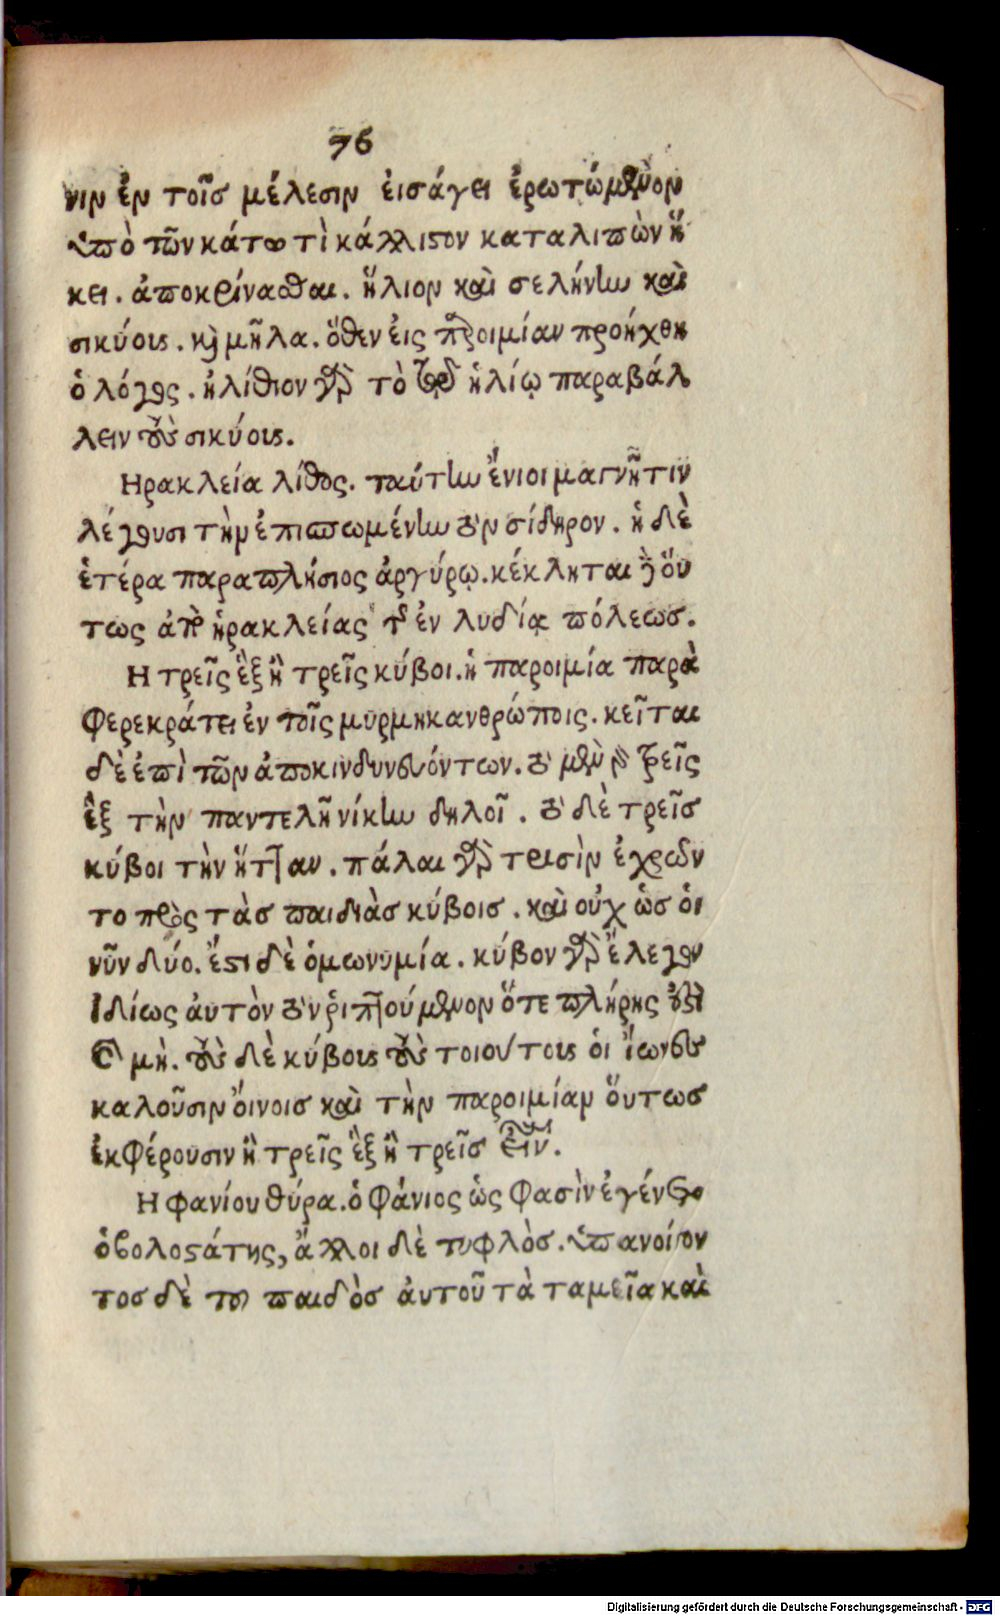 76
νιν ἐν τοῖς μέλεσιν ἐισάγει ἐρωτώμενον
ὑπὸ τῶν κάτω τὶ κάλλιστον καταλιπὼν ἥ
κει. ἀποκρίνασθαι. ἥλιον καὶ σελήνην καὶ
σικύους. καὶ μῆλα. ὅθεν εἰς παροιμίαν προήχθη
ὁ λόγος. ἠλίθιον γὰρ τὸ τῷ ἡλίῳ παραβάλ
λειν τοὺς σικύους.
Ηρακλεία λίθος. ταύτην ἔνιοι μαγνῆτιν
λέγουσι τὴν ἐπισπωμένην τὸν σίδηρον. ἡ δὲ
ἑτέρα παραπλήσιος ἀργύρῳ. κέκληται δὲ ὅυ
τως ἀπὸ ἡρακλείας τῆς ἐν λυδίᾳ πόλεως.
Η τρεῖς ἓξ ἢ τρεῖς κύβοι. ἡ παροιμία παρὰ
Φερεκράτει ἐν τοῖς μυρμηκανθρώποις. κεῖται
δὲ ἐπὶ τῶν ἀποκινδυνευόντων. τὸ μὲν γὰρ τρεῖς
ἓξ τὴν παντελῆ νίκην δηλοῖ. τὸ δὲ τρεῖς
κύβοι τὴν ἥτταν. πάλαι γὰρ τρισὶν ἐχρῶν
το πρὸς τὰς παιδιὰς κύβοις. καὶ οὐχ ὡς ὁι
νῦν δύο. ἔστι δὲ ὁμωνυμία. κύβον γὰρ ἔλεγον
Ιδίως ἀυτὸν τὸν ῥιπτούμενον ὅτε πλήρης
μὴ. τοὺς δὲ κύβους τοὺς τοιούτους ὁι ἴωνες
καλοῦσιν ὄινοις καὶ τὴν παροιμίαν ὅυτως
ἐκφέρουσιν ἢ τρεῖς ἓξ ἢ τρεῖς
Η φανίου θύρα. ὁ Φάνιος ὡς Φασὶν ἐγένετο
ὀβολοστάτης, ἄλλοι δὲ τυφλὸς. ὑπανοίγον
τος δὲ του παιδὸς ἀυτοῦ τὰ ταμεῖα καὶ
Digitalisierung gefördert durch die Deutsche Forschungsgemeinschaft - DFG